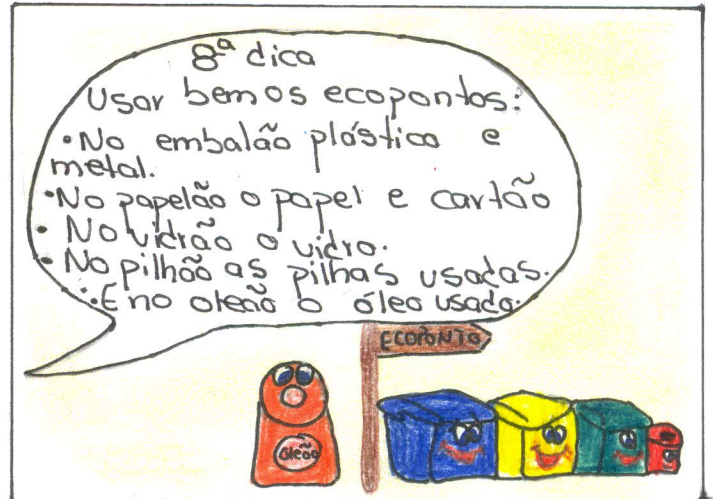 8ª dica
Usar bem os ecopontos:
•No embalão plástico e
metal.
•No papelão o papel e cartão
• No vidrão o vidro.
• No pilhão as pilhas usadas.
•E no oleão o óleo usado.
ECOPONTO
óleão